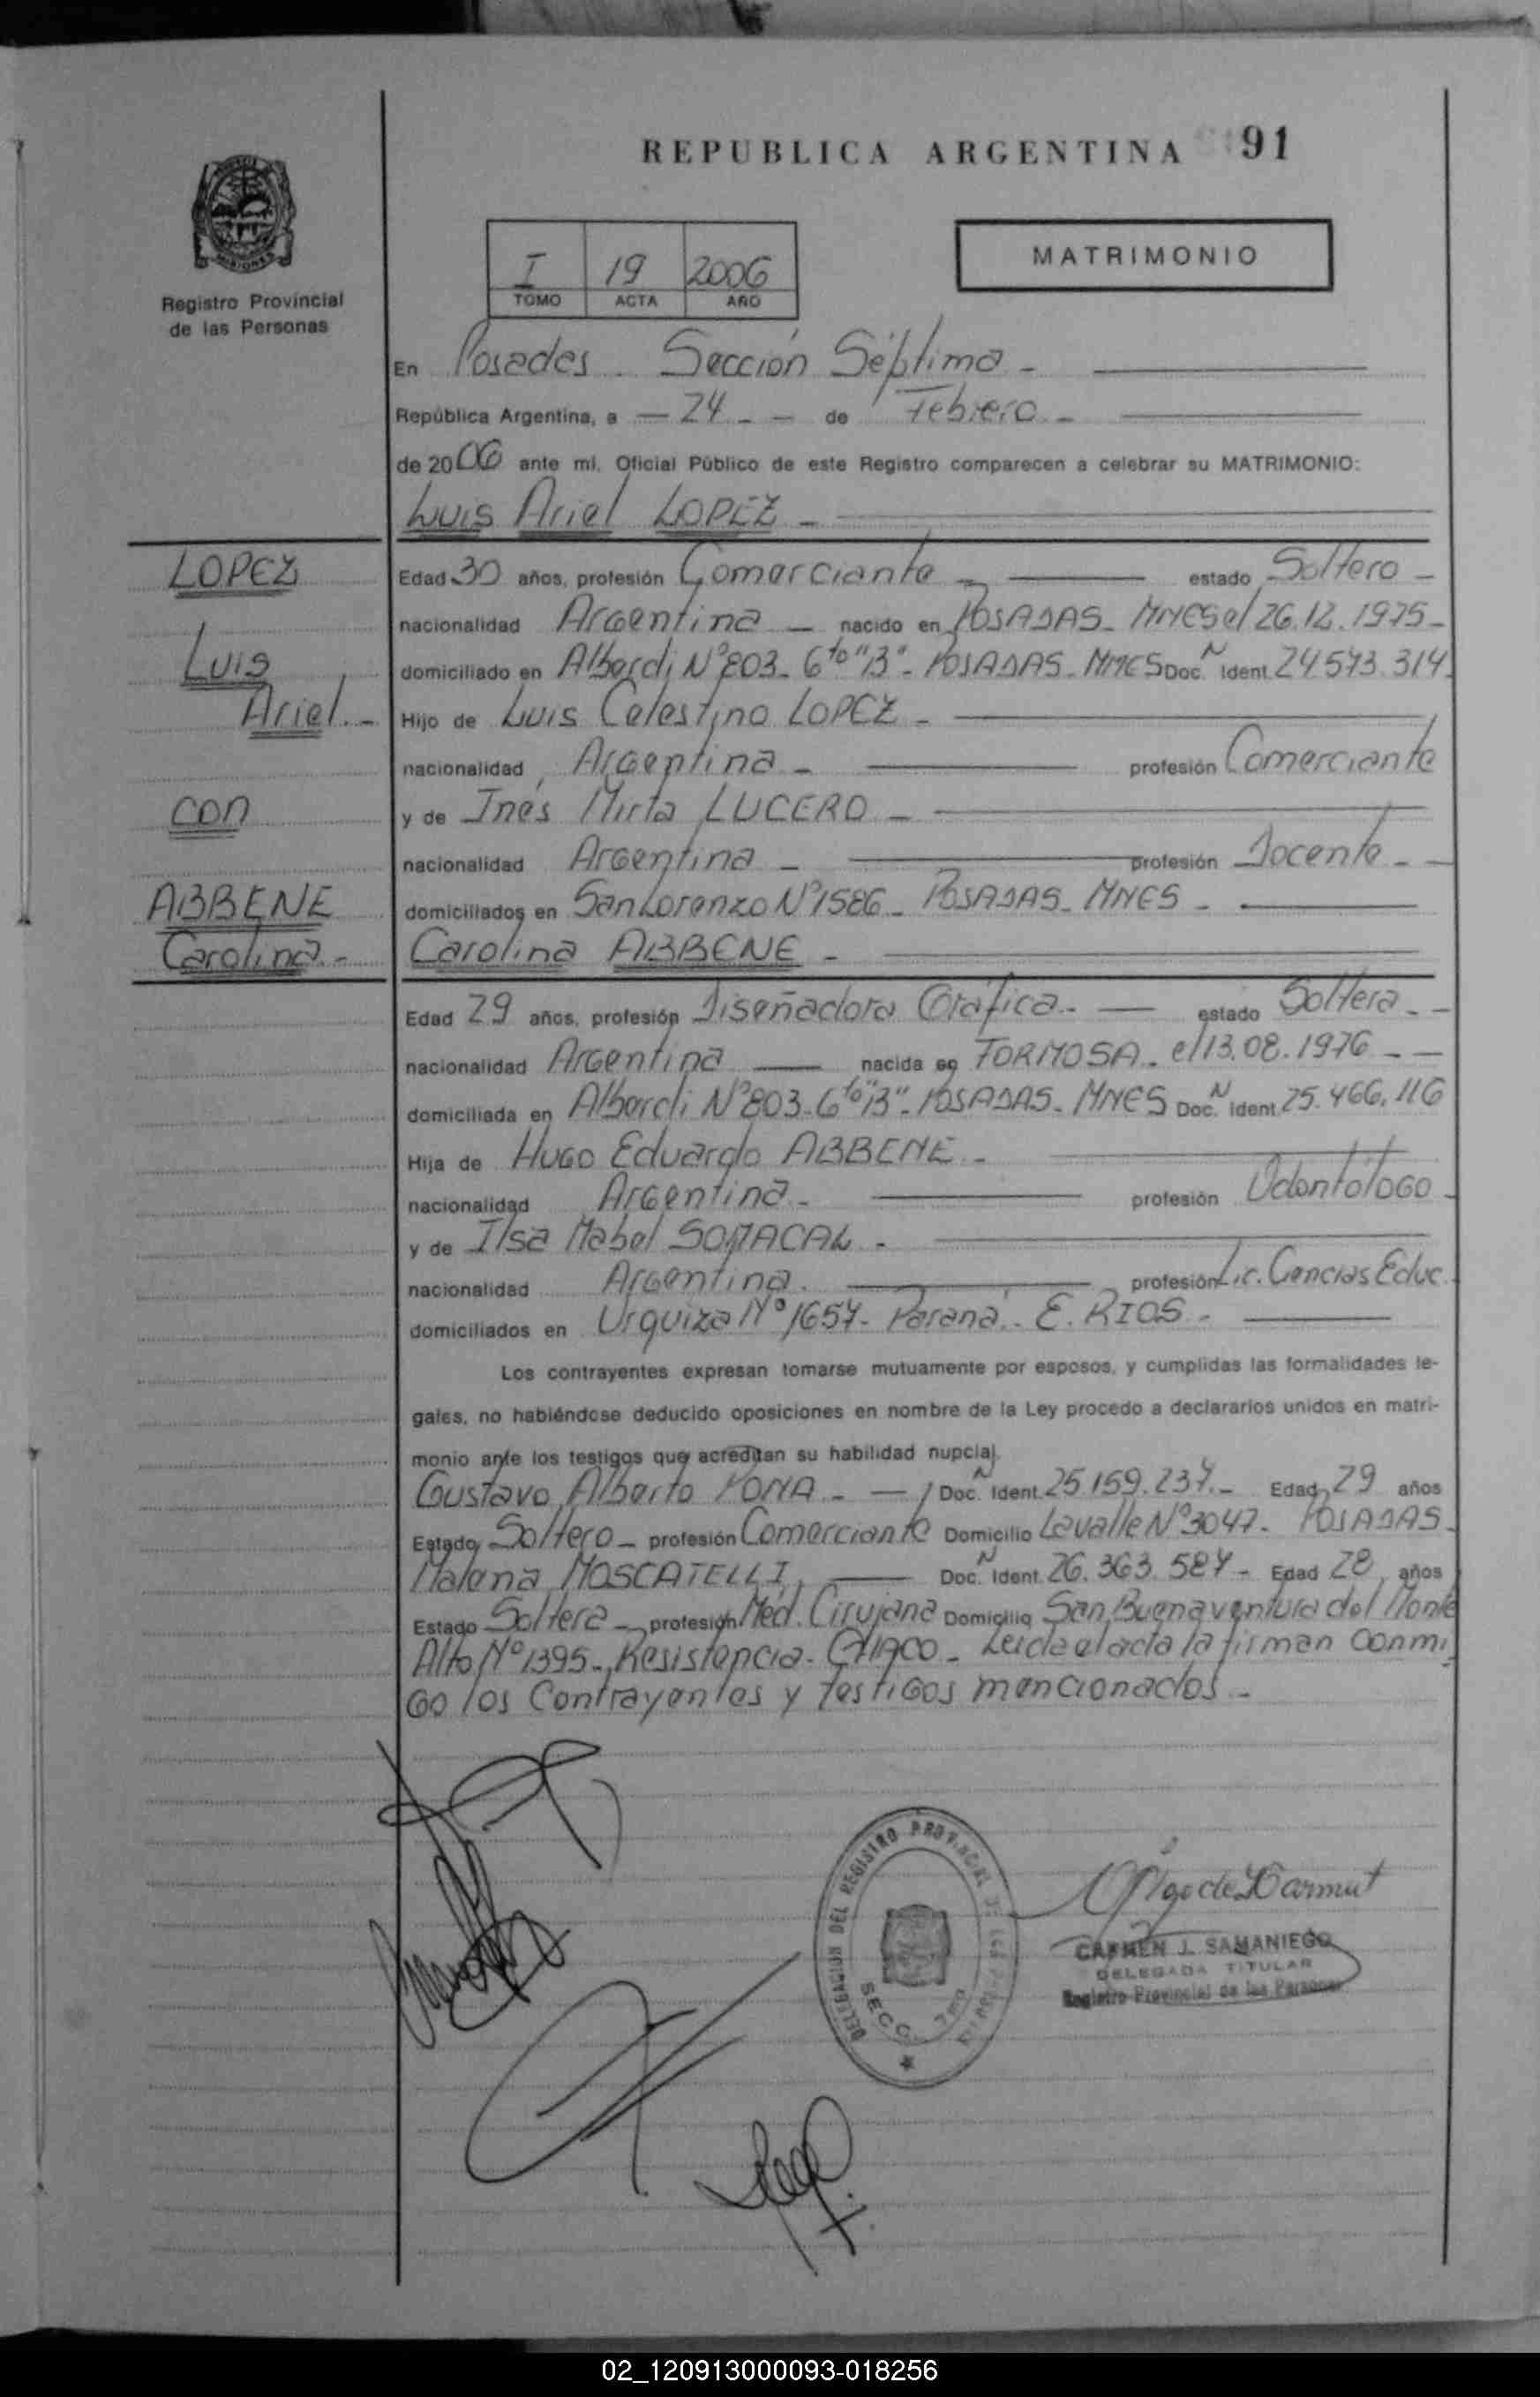 REPUBLICA ARGENTINA 91
MISIONES
Registro Provincial
de las Personas
I 19 2006
TOMO ACTA AÑO
MATRIMONIO
En Posadas - Sección Séptima -
República Argentina, a — 24 - — de Febrero -
de 2006 ante mí, Oficial Público de este Registro comparecen a celebrar su MATRIMONIO:
Luis Ariel LOPEZ -
LOPEZ
Luis
Ariel. -
con
ABBENE
Carolina -
Edad 30 años, profesión Comerciante - estado Soltero -
nacionalidad Argentina - nacido en POSADAS - MNES el 26.12.1975 -
domiciliado en Alberdi Nº 803 - 6to "B" - POSADAS - MNES Doc. N Ident. 24.573.314
Hijo de Luis Celestino LOPEZ -
nacionalidad Argentina - profesión Comerciante
y de Inés Mirta LUCERO -
nacionalidad Argentina - profesión Docente -
domiciliados en San Lorenzo Nº 1586 - POSADAS - MNES -
Carolina ABBENE -
Edad 29 años, profesión Diseñadora Gráfica - estado Soltera -
nacionalidad Argentina nacida en FORMOSA - el 13.08.1976 -
domiciliada en Alberdi Nº 803 - 6to "B" - POSADAS - MNES Doc. N Ident. 25.466.116
Hija de Hugo Eduardo ABBENE -
nacionalidad Argentina - profesión Odontólogo -
y de Ilsa Mabel SOMACAL -
nacionalidad Argentina. profesión Lic. Cencias Educ.
domiciliados en Urquiza Nº 1657 - Paraná - E. RIOS -
Los contrayentes expresan tomarse mutuamente por esposos, y cumplidas las formalidades le-
gales, no habiéndose deducido oposiciones en nombre de la Ley procedo a declararlos unidos en matri-
monio ante los testigos que acreditan su habilidad nupcial.
Gustavo Alberto - Doc. N Ident. 25.159.237 - Edad 29 años
Estado Soltero - profesión Comerciante Domicilio Lavalle Nº 3047 - POSADAS -
Malena MOSCATELLI Doc. N Ident. 26.363.587 - Edad 28 años
Estado Soltera - profesión Med. Cirujana Domicilio San Buenaventura del Monte
Alto Nº 1395 - Resistencia - CHACO - Leida el acta la firman conmi
go los Contrayentes y testigos mencionados -
DELEGACION DEL REGISTRO PROVINCIAL DE LAS PERSONAS
SECC. 7ma
CARMEN J. SAMANIEGO
DELEGADA TITULAR
Registro Provincial de las Personas
02_120913000093-018256